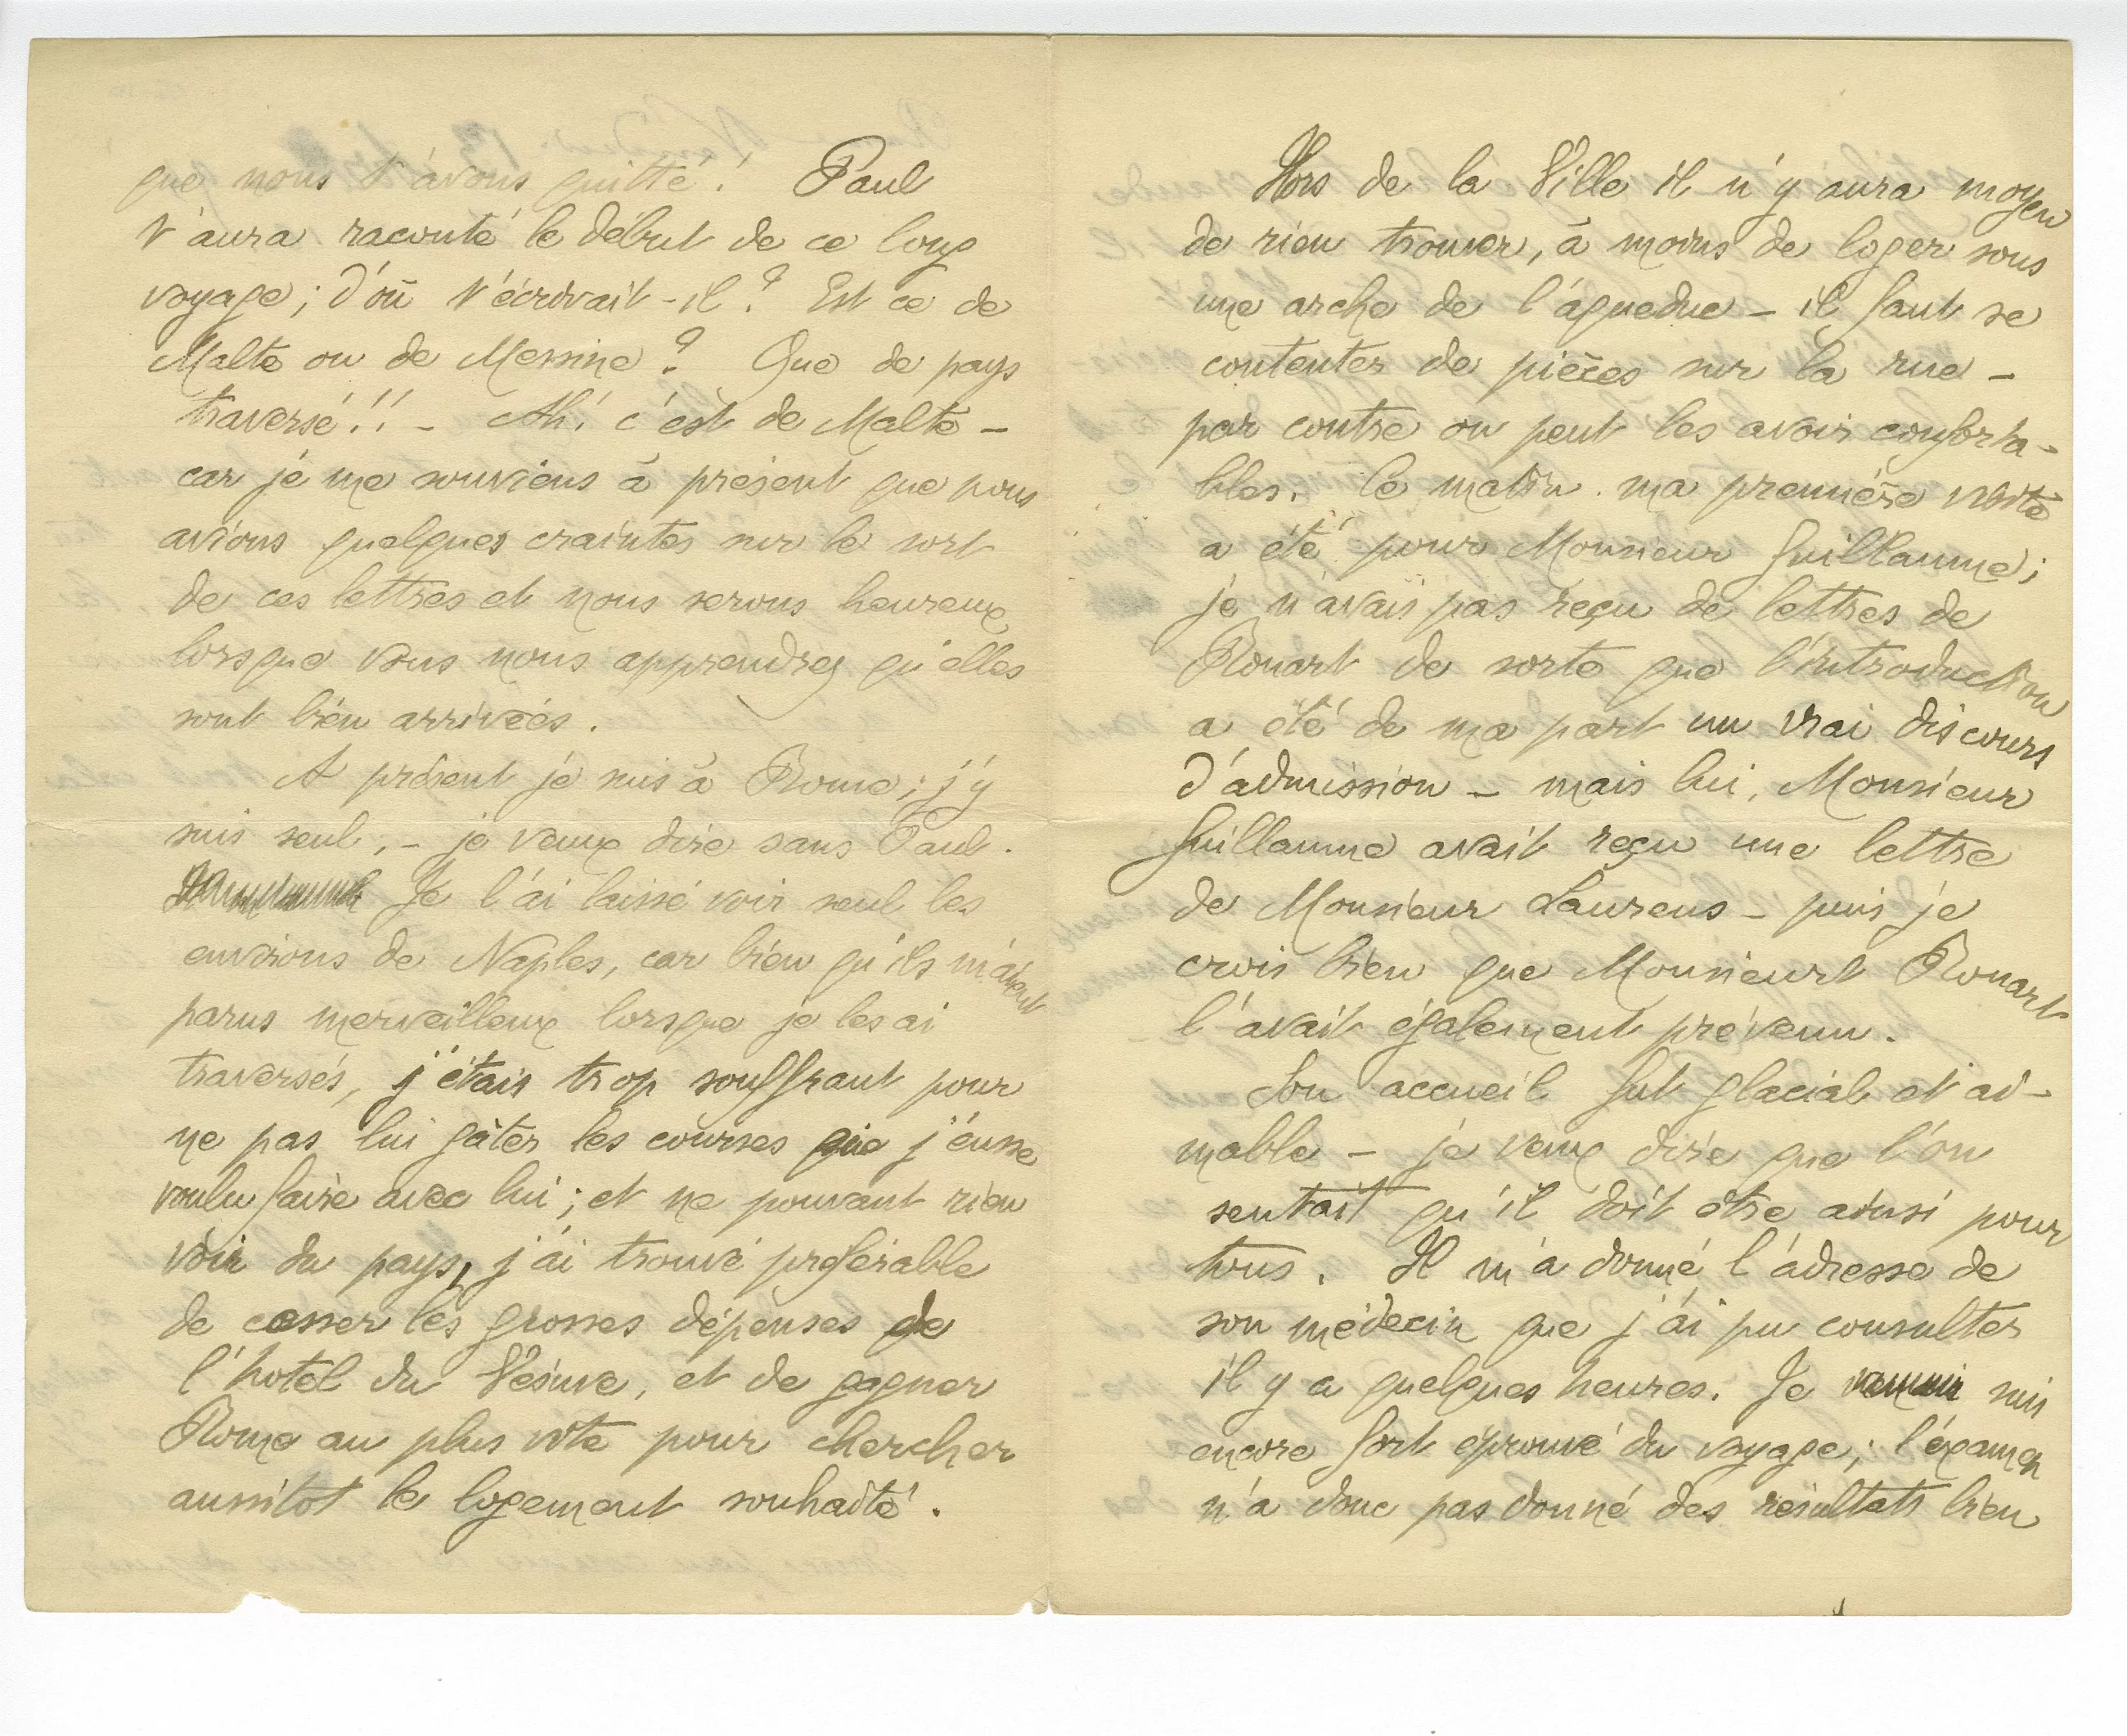 que nous t'avons quitté! Paul
t'aura raconté le début de ce long
voyage; d'où t'écrivait-il? Est ce de
Malte ou de Messine? Que de pays
traversé!! - Ah! c'est de Malte -
car je me souviens à présent que nous
avions quelques craintes sur le sort
de ces lettres et nous serons heureux
lorsque vous nous apprendrez qu'elles
sont bien arrivées.
A présent je suis à Rome; j'y
suis seul, - je veux dire sans Paul.
Je l'ai laissé voir seul les
environs de Naples, car bien qu'ils m'aient
parus merveilleux lorsque je les ai
traversés, j'étais trop souffrant pour
ne pas lui gâter les courses que j'eusse
voulu faire avec lui; et ne pouvant rien
voir du pays, j'ai trouvé préférable
de cesser les grosses dépenses de
l'hotel du Vésuve, et de gagner
Rome au plus vite pour chercher
aussitot le logement souhaité.
Hors de la Ville il n'y aura moyen
de rien trouver, à moins de loger sous
une arche de l'aqueduc - il faut se
contenter de pièces sur la rue -
par contre on peut les avoir conforta-
bles. Ce matin ma première visite
a été pour Monsieur Guillaume;
je n'avais pas reçu de lettres de
Rouart de sorte que l'introduction
a été de ma part un vrai discours
d'admission - mais lui, Monsieur
Guillaume avait reçu une lettre
de Monsieur Laurens - puis je
crois bien que Monsieurt Rouart
l'avait également prévenu.
Son accueil fut glacial et ai-
mable - je veux dire que l'on
sentait qu'il doit être ainsi pour
tous. Il m'a donné l'adresse de
son médecin que j'ai pu consulter
il y a quelques heures. Je suis
encore fort éprouvé du voyage; l'examen
n'a donc pas donné des résultats bien